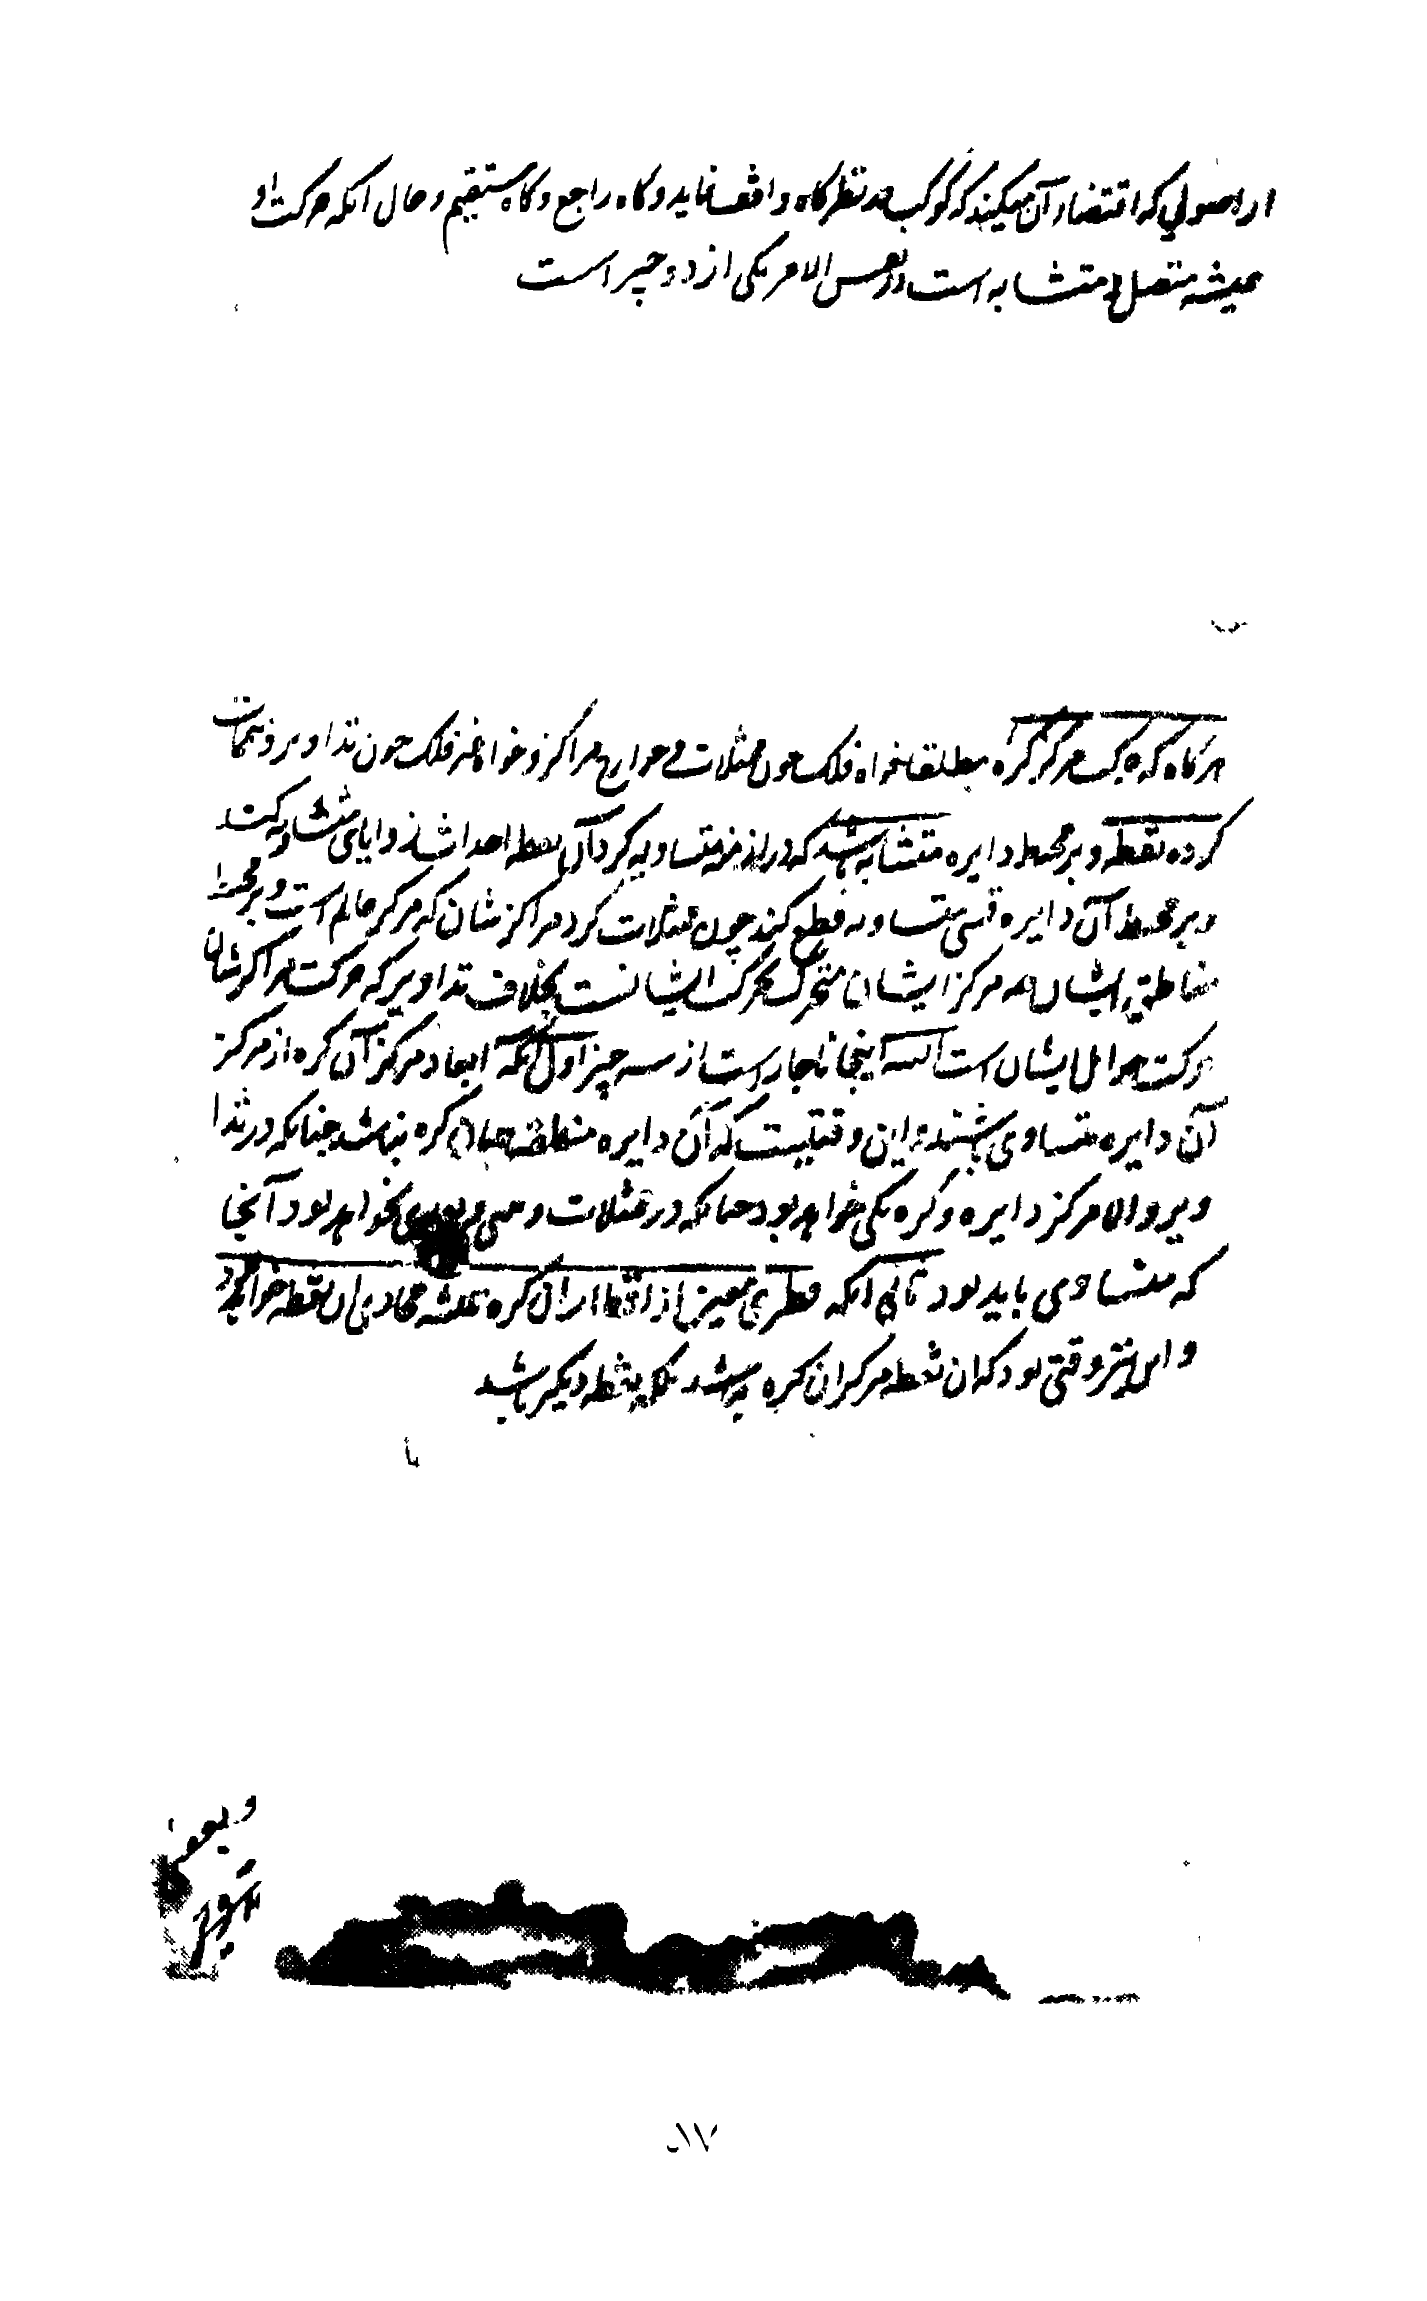 از اصولی که اقتضاء آن میکند که کوکب در نظر کاه واقف نماید و کاه راجع و کاه مستقیم و حال آنکه حرکت او
همیشه متصل و متشابه است در نفس الامر یکی از دو چیز است
هرکاه که حرکت مرکز کره مطلقا خواه فلک چون ممثلات و خوارج مراکز و خواه غیر فلک چون تداویر و متممات
کرد نقطه و بر محیط دایره متشابه باشد که در ازمنه متساویه کرد آن نقطه احداث زوایای متشاویه کند
و بر محیط آن دایره قسی متساویه قطع کند چون ممثلات کرد مراکزشان که مرکز عالم است و بر محیط
مناطق ایشان مرکز ایشان متحرک بحرکت ایشانست بخلاف تداویر که حرکت مراکزشان
حرکت حوامل ایشان است اینجا ناچار است از سه چیز اول آنکه ابعاد مرکز آن کره از مرکز
آن دایره متساوی باشند و این وقتیست که آن دایره منطقه همان کره نباشد چنانکه در تدا
ویر و الا مرکز دایره و کره یکی خواهد بود چنانکه در ممثلات و نخواهد بود آنجا
که متساوی باید بود ثانی آنکه قطری معین از اقطار آن کره همیشه محاذی آن نقطه خواهد بود
و این نیز وقتی بود که آن نقطه مرکز آن کره نباشد بلکه نقطه دیکر باشد
۱۷